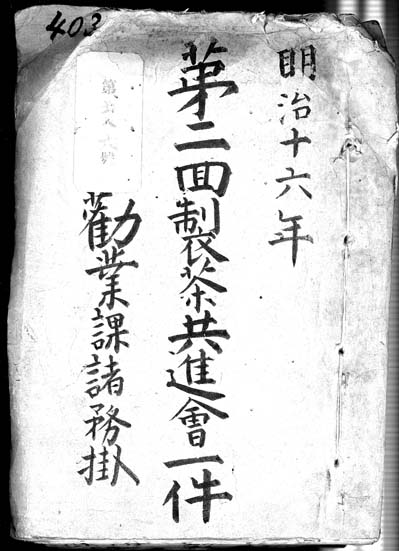 403
明治十六年
第二回製茶共進會一件
勸業課諸務掛